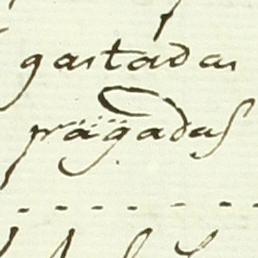 gastadas
prägadas